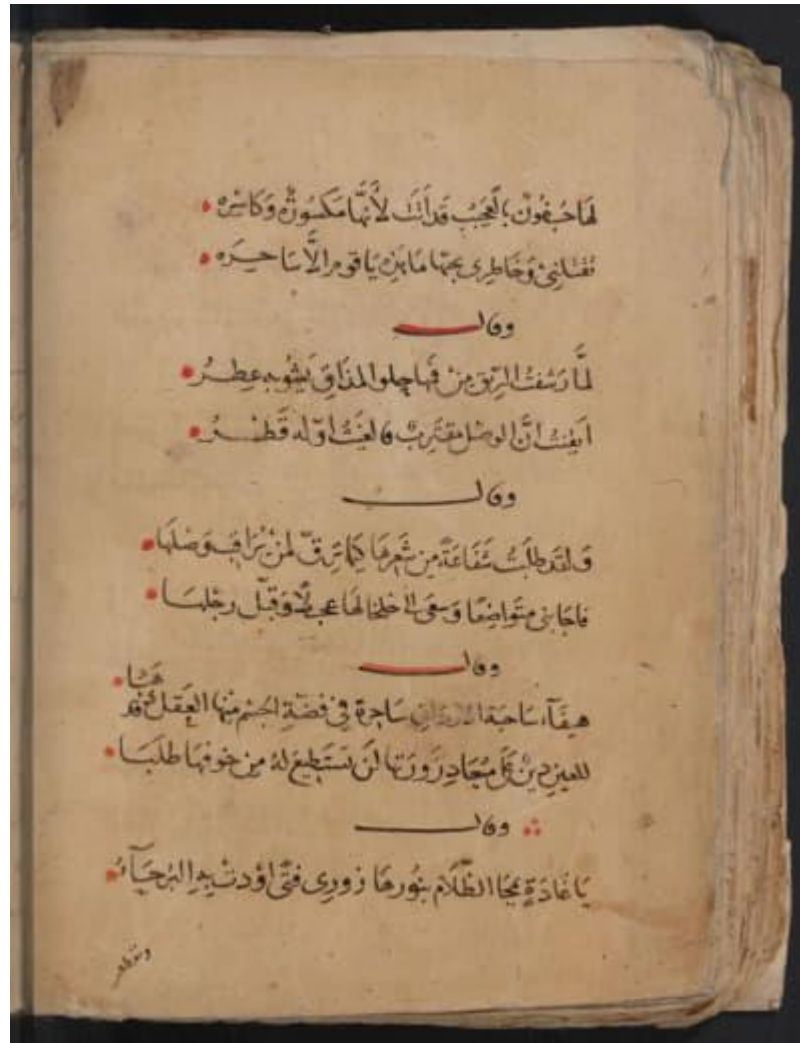 لها جفون بالعجب قد أتت لأنها مكسورة وكاسره
تقتلني وخاطري بحبها ما هذه يا قوم الا ساحره
وقال
لما رشفت الريق من فمها حلو المذاق يشوبه عطر
ايقنت ان الوصل مقترب فالغيث اوله قطر
وقال
ولقد طلبت شفاعة من شعرها كيما ترق لمن يراقب وصلها
فاجابني متواضعا وسعى الى خلخالها عجلا وقبل رجلها
وقال
هيفاء ساحبة ساحرة في فضة الجسم منها العقل قد
للعين دين على ميعاد زورتها لن تستطيع له من خوفها طلبا
وقال
يا غادة يمحا الظلام بنورها زوري فتى اودت به البرحاء